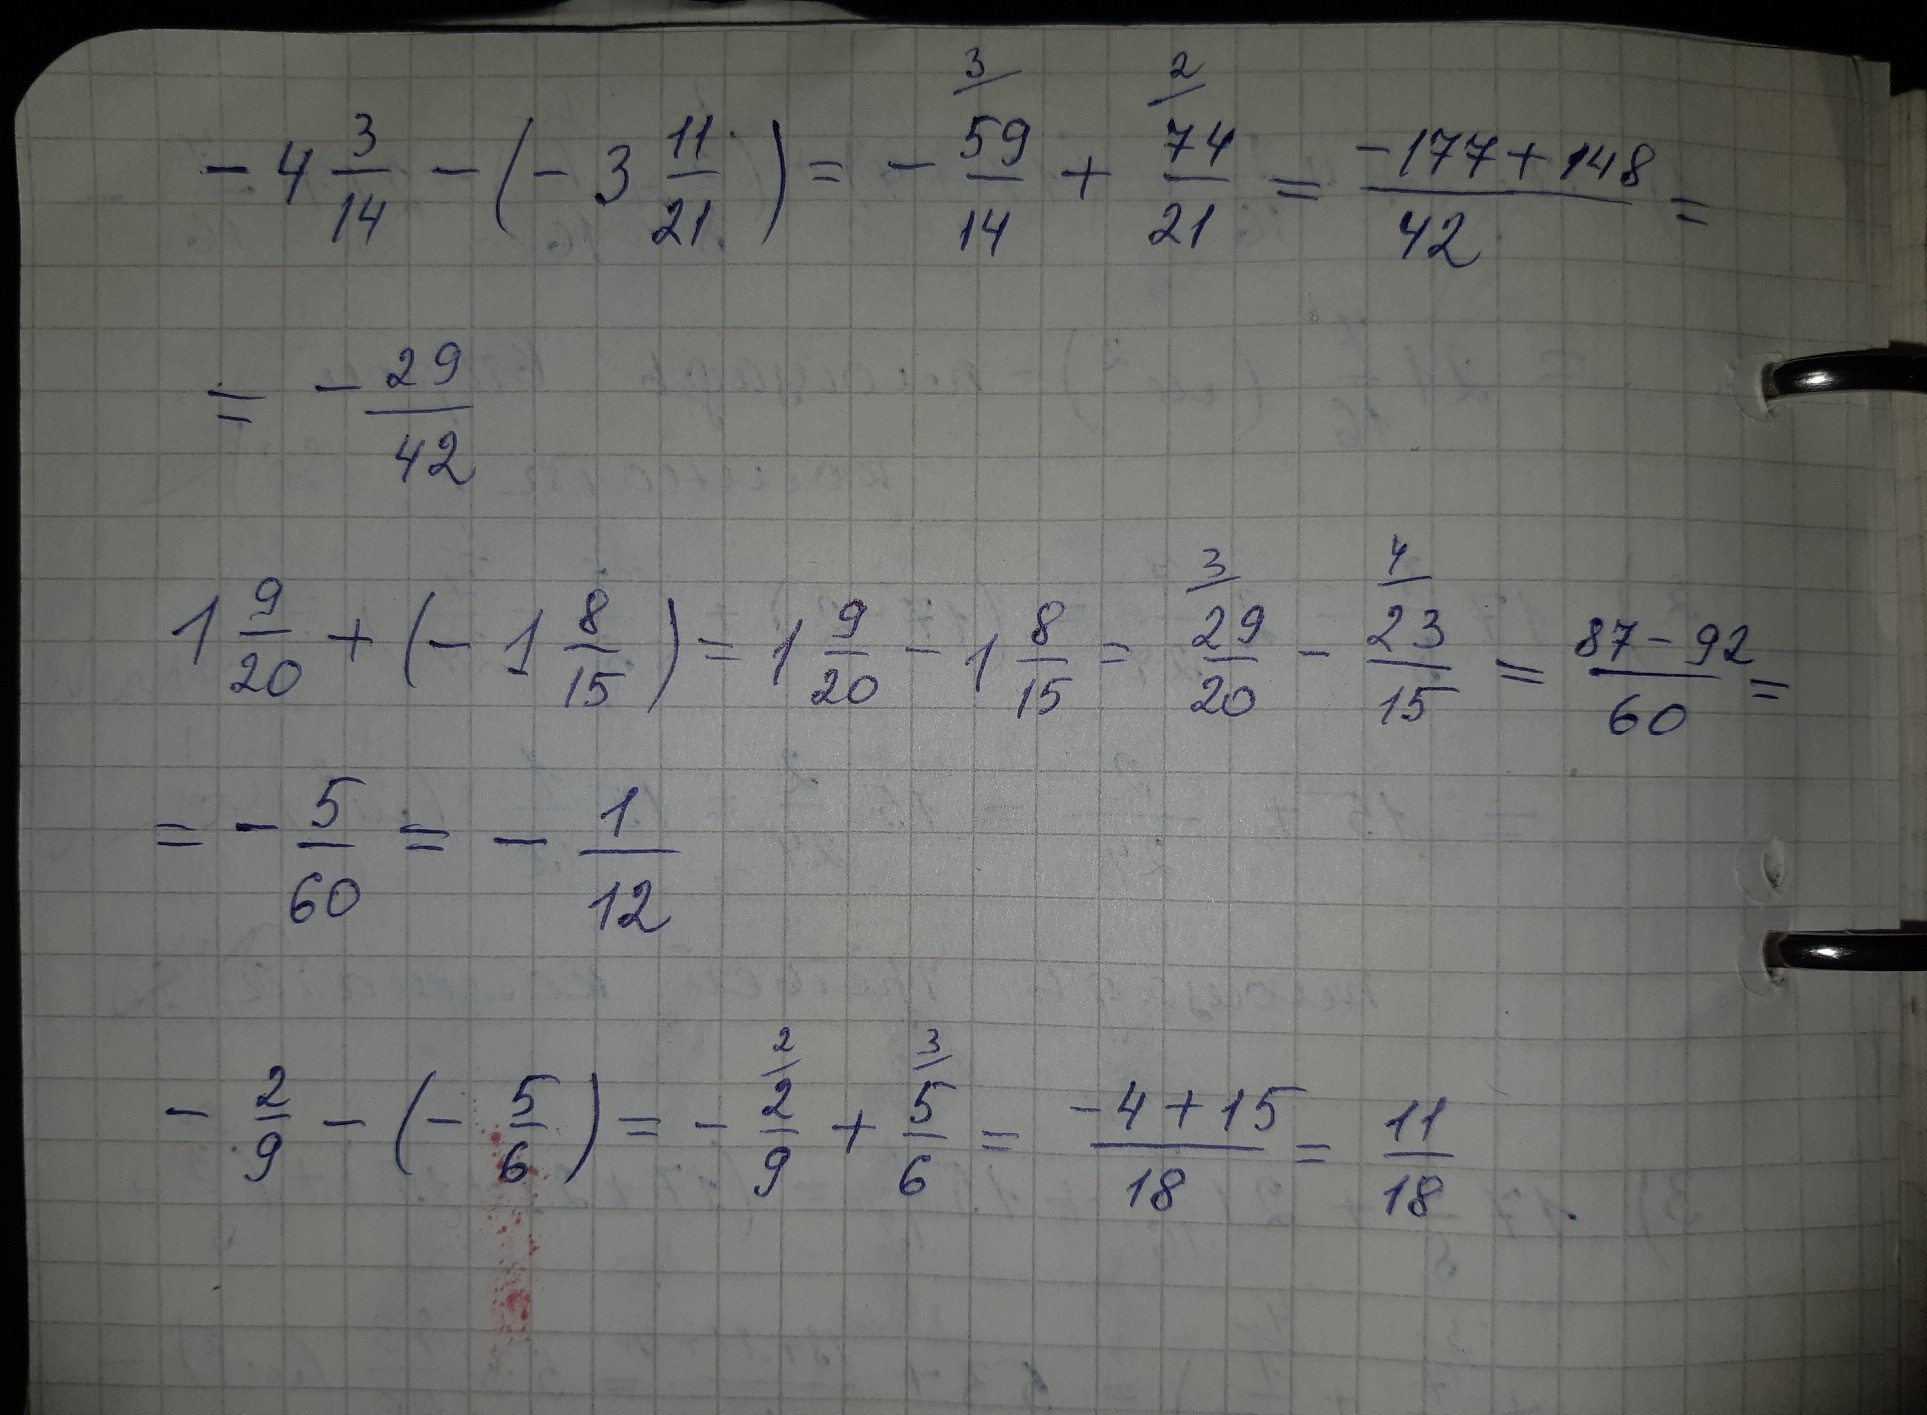 -4 3/14 - (-3 11/21) = - 59/14 (3/) + 74/21 (2/) = (-177+148)/42 =
= - 29/42
1 9/20 + (-1 8/15) = 1 9/20 - 1 8/15 = 29/20 (3/) - 23/15 (4/) = (87-92)/60 =
= - 5/60 = - 1/12
- 2/9 - (- 5/6) = - 2/9 (2/) + 5/6 (3/) = (-4+15)/18 = 11/18